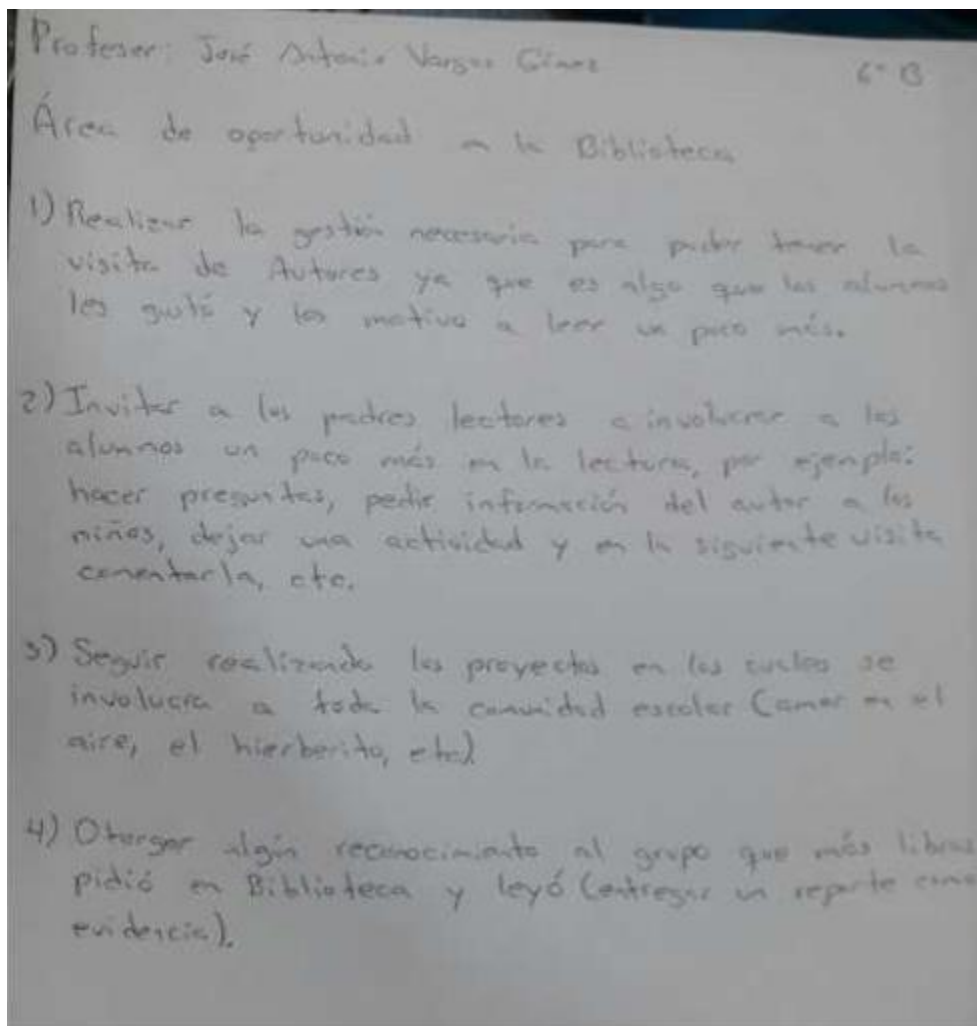 Profesor: José Antonio Vargas Gómez 6° B
Área de oportunidad a la Biblioteca
1) Realizar la gestión necesaria para poder tener la
visita de Autores ya que es algo que los alumnos
les gustó y los motivo a leer un poco más.
2) Invitar a los padres lectores a involucrar a los
alumnos un poco más en la lectura, por ejemplo:
hacer preguntas, pedir información del autor a los
niños, dejar una actividad y en la siguiente visita
comentarla, etc.
3) Seguir realizando los proyectos en los cuales se
involucra a toda la comunidad escolar (amor en el
aire, el hierberito, etc)
4) Otorgar algún reconocimiento al grupo que más libros
pidió en Biblioteca y leyó (entregar un reporte como
evidencia).